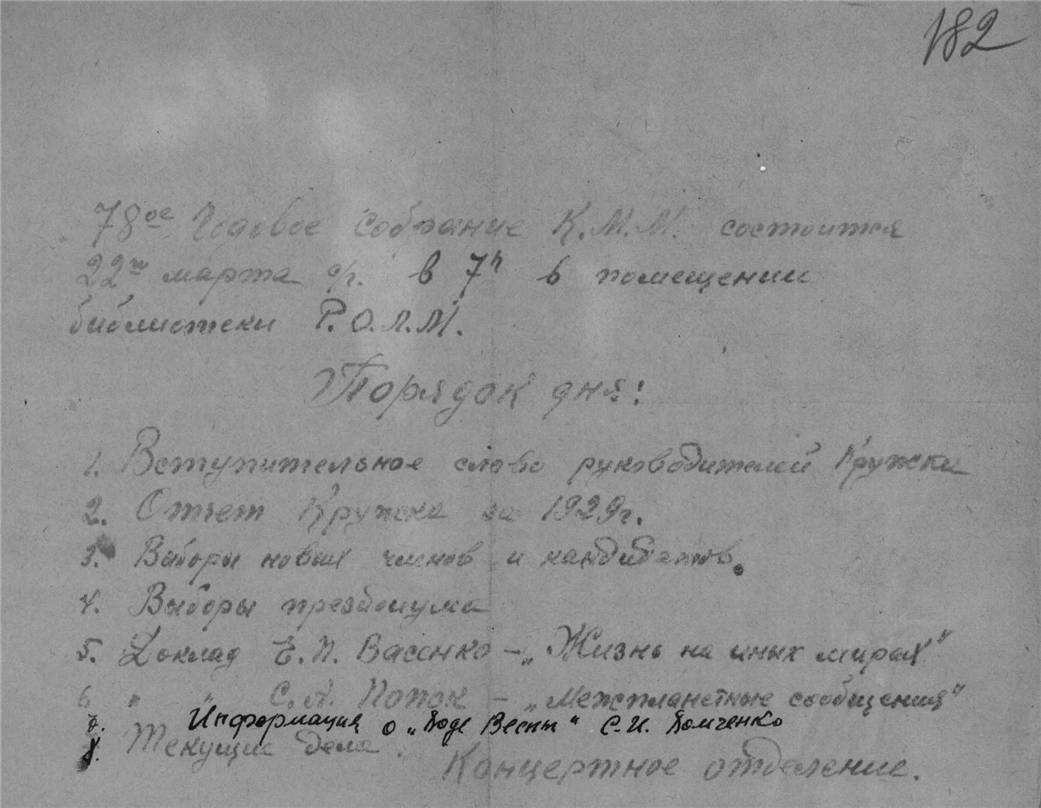 182
78ое Годовое собрание К.М.М. состоится
22го марта с/г. в 7ч в помещении
библиотеки Р.О.Л.М.
Порядок дня:
1. Вступительное слово руководителей Кружка
2. Отчет Кружка за 1929г.
3. Выборы новых членов и кандидатов.
4. Выборы президиума
5. Доклад Е.П. Васенко – „Жизнь на иных мирах"
6 " " С.А. Поток – „Межпланетные сообщения"
7. Информация о „Ходе Весны" С.И. Томченко
8. Текущие дела.
Концертное отделение.